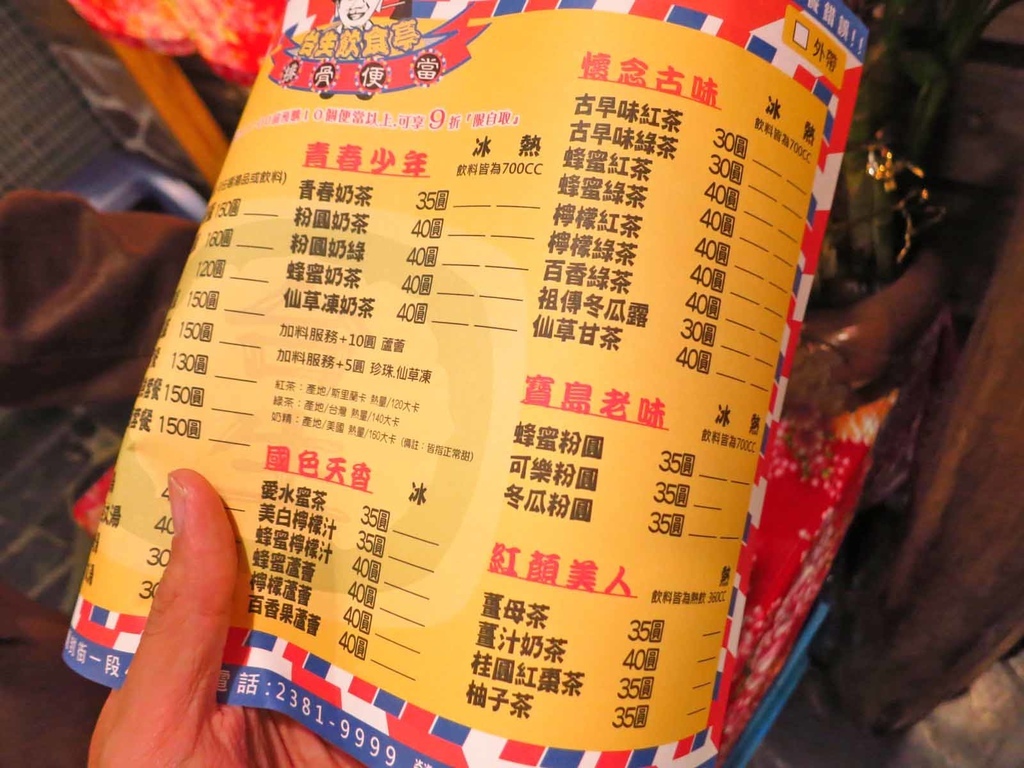 台生飲食亭
排骨便當
外帶
10個便當以上,可享9折『限自取』
青春少年 冰 熱
飲料皆為700CC
青春奶茶 35圓
粉圓奶茶 40圓
粉圓奶綠 40圓
蜂蜜奶茶 40圓
仙草凍奶茶 40圓
加料服務+10圓 蘆薈
加料服務+5圓 珍珠.仙草凍
紅茶：產地/斯里蘭卡 熱量/120大卡
綠茶：產地/台灣 熱量/140大卡
奶精：產地/美國 熱量/160大卡 (備註：皆指正常甜)
國色天香 冰
愛水蜜茶 35圓
美白檸檬汁 35圓
蜂蜜檸檬汁 40圓
蜂蜜蘆薈 40圓
檸檬蘆薈 40圓
百香果蘆薈 40圓
懷念古味 冰 熱
飲料皆為700CC
古早味紅茶 30圓
古早味綠茶 30圓
蜂蜜紅茶 40圓
蜂蜜綠茶 40圓
檸檬紅茶 40圓
檸檬綠茶 40圓
百香綠茶 40圓
祖傳冬瓜露 30圓
仙草甘茶 40圓
寶島老味 冰 熱
飲料皆為700CC
蜂蜜粉圓 35圓
可樂粉圓 35圓
冬瓜粉圓 35圓
紅顏美人 熱
飲料皆為熱飲 360CC
薑母茶 35圓
薑汁奶茶 40圓
桂圓紅棗茶 35圓
柚子茶 35圓
150圓
160圓
120圓
150圓
150圓
130圓
套餐 150圓
套餐 150圓
湯 40
30
30
街一段
電話:2381-9999